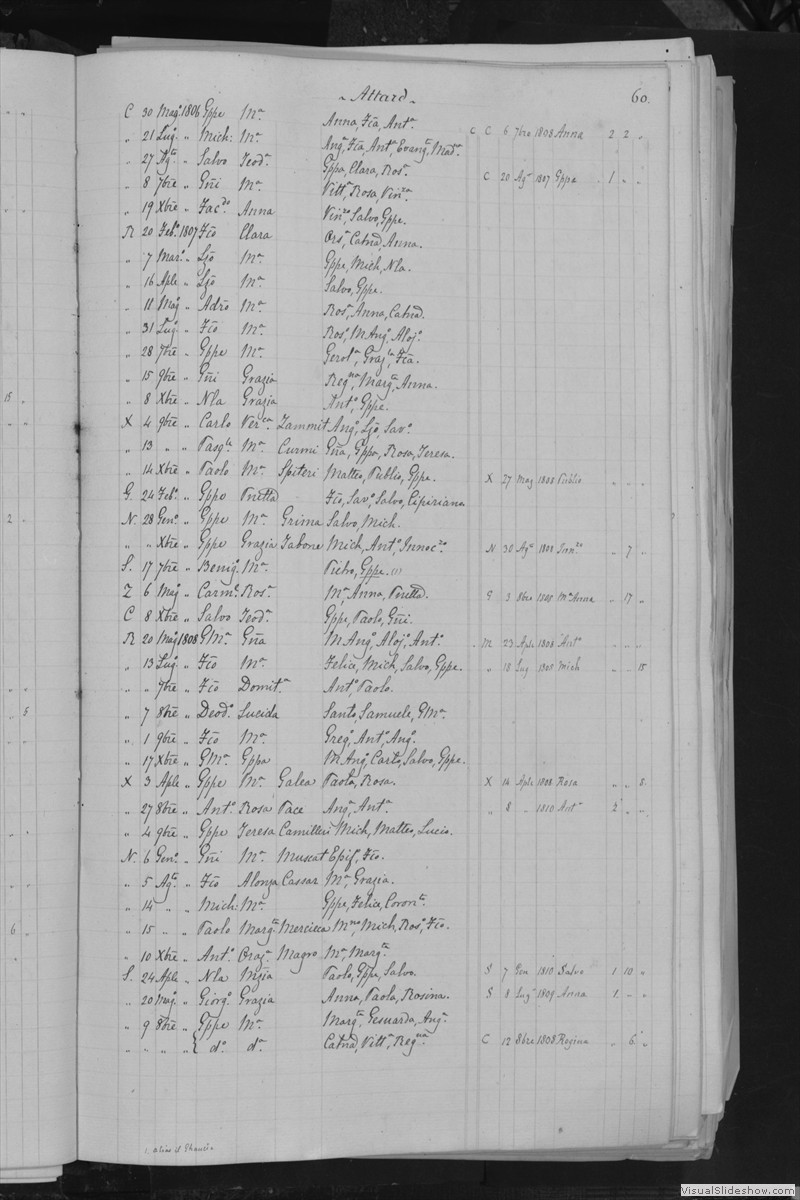 ~ Attard ~ 60.
C 30 Magº 1806 Gppe Mª Anna, Fca, Antª
„ 21 Lugº „ Mich: Mª Angª, Fca, Antª, Evangª, Madª. C C 6 7bre 1808 Anna 2 2 „
„ 27 Agº „ Salvo Teodª. Gppa, Clara, Rosª.
„ 8 7bre „ Gñi Mª Vittª, Rosa, Vinzª. C 20 Agº 1807 Gppa 1 „ „
„ 19 Xbre „ Anna Vinzº, Salvo, Gppe.
R 20 Febº. 1807 Fco Clara Orsª, Catnd, Anna.
„ 7 Marº. „ Ljo Mª Gppe, Mich, Nla.
„ 16 Aple „ Ljo Mª Salvo, Gppe.
„ 11 Magº „ Adrõ Mª Rosª, Anna, Catnd.
„ 31 Lugº „ Fco Mª Rosª, M Angª, Alojª.
„ 28 7bre „ Gppe Mª Gerolª, Grajª, Fca.
„ 15 9bre „ Gñi Grazia Regna, Margª, Anna.
15 „ „ 8 Xbre „ Nla Grazia Antº, Gppe.
X 4 9bre „ Carlo Verca Zammit Angº, Ljo, Savº.
„ 13 „ „ Pasqle Mª Curmi Gña, Gppa, Rosa, Teresa.
„ 14 Xbre „ Paolo Mª Spiteri Matteo, Publio, Gppe. X 27 Mag 1808 Publio „ „ „
G. 24 Febº. „ Gppe Pnetta Fco, Savº, Salvo, Cipiriana
2 „ N. 28 Genº „ Gppe Mª Grima Salvo, Mich.
„ „ Xbre „ Gppe Grazia Zabone Mich, Antº, Innocº. N 30 Agº 1808 Innzo „ 7 „
S. 17 7bre „ Benigº. Mª Pietro, Gppe. (1)
Z 6 Magº „ Carmº. Rosª Mª, Anna, Pnetta. G 3 8bre 1808 Mª Anna „ 17 „
C 8 Xbre „ Salvo Teodª Gppe, Paolo, Gñi.
R 20 Magº 1808 GMª Gña M Angº, Alojº, Antº. „ M 23 Aple 1808 Antº „ „ „
„ 13 Lugº „ Fco Mª Felice, Mich, Salvo, Gppe. „ 18 Lug 1808 Mich „ „ 15
„ „ 7bre „ Fco Domitª. Antº, Paolo.
„ 5 „ 7 8bre „ Deodº. Lucida Santo, Samuele, GMª.
„ 1 9bre „ Fco Mª Gregº, Antº, Angº.
„ 17 Xbre „ GMª Gppa M Angº, Carlo, Salvo, Gppe.
X 3 Aple „ Gppe Mª Galea Paola, Rosa. X 14 Aple 1808 Rosa „ „ 5
„ 27 8bre „ Antº Rosa Pace Angª, Antª. „ 8 „ 1810 Antª 2 „ „
„ 4 9bre „ Gppe Teresa Camilleri Mich, Matteo, Lucio.
N. 6 Genº „ Gñi Mª Muscat Epifº, Fco.
„ 5 Agº „ Fco Alonza Cassar Mª, Grazia.
„ 14 „ „ Mich: Mª Gppe, Felice, Coronª.
6 „ „ 15 „ „ Paolo Margta Mercieca Mno, Mich, Rosº, Fco.
„ 10 Xbre „ Antº Orajª Magro Mª, Margta
S. 24 Aple „ Nla Mzia Paolo, Gppe, Salvo. S 7 Gen 1810 Salvo 1 10 „
„ 20 Magº „ Giorgº Grazia Anna, Paola, Rosina. S 8 Lugº 1809 Anna 1 „ „
„ 9 8bre „ Gppe Mª Margª, Gesuarda, Angª.
„ „ „ „ { dº. dª. Catnd, Vittª, Regna C 12 8bre 1808 Regina „ 6 „
1. alias il
VisualSlideshow.com